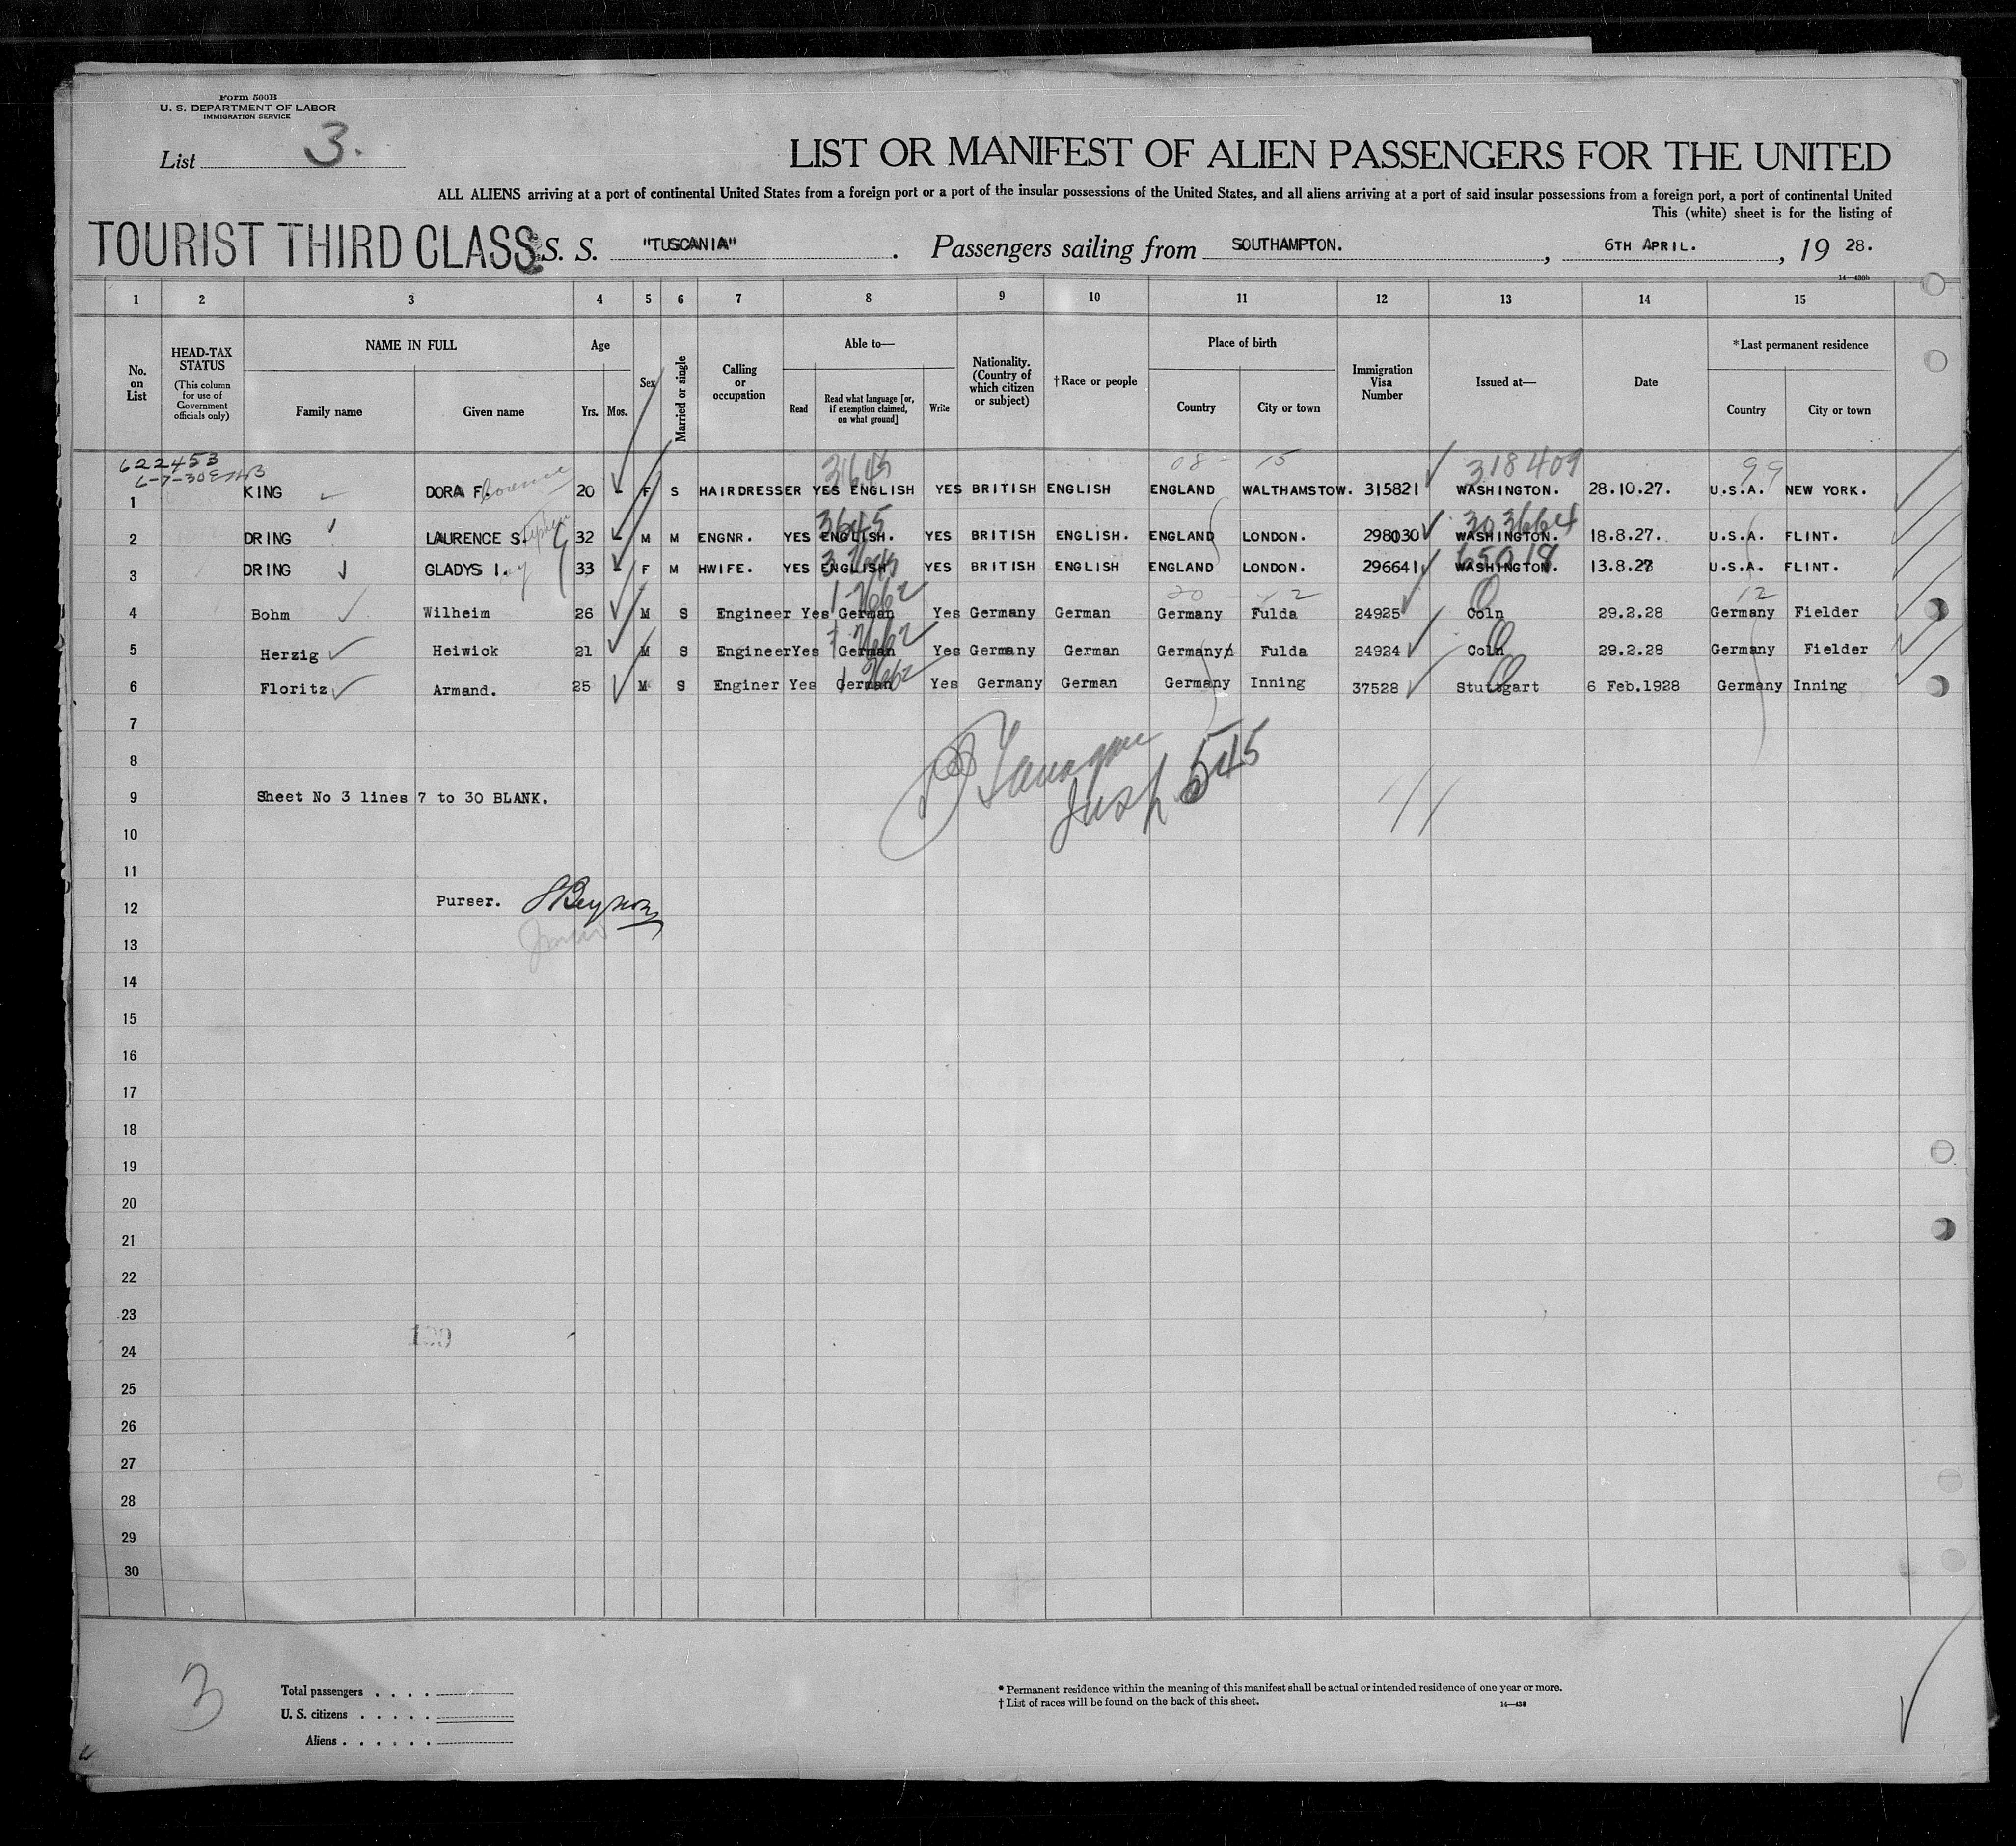 Form 500B
U. S. DEPARTMENT OF LABOR
IMMIGRATION SERVICE
List 3.
LIST OR MANIFEST OF ALIEN PASSENGERS FOR THE UNITED
ALL ALIENS arriving at a port of continental United States from a foreign port or a port of the insular possessions of the United States, and all aliens arriving at a port of said insular possessions from a foreign port, a port of continental United
This (white) sheet is for the listing of
TOURIST THIRD CLASS S. S. "TUSCANIA" . Passengers sailing from SOUTHAMPTON. , 6TH APRIL. , 19 28.
14—430b
1 2 3 4 5 6 7 8 9 10 11 12 13 14 15
No. on List HEAD-TAX STATUS (This column for use of Government officials only) NAME IN FULL Family name Given name Age Yrs. Mos. Sex Married or single Calling or occupation Able to— Read Read what language [or, if exemption claimed, on what ground] Write Nationality. (Country of which citizen or subject) †Race or people Place of birth Country City or town Immigration Visa Number Issued at— Date *Last permanent residence Country City or town
622453 3645 08- 15 318409 99
1 KING DORA F. 20 - F S HAIRDRESSER YES ENGLISH YES BRITISH ENGLISH ENGLAND WALTHAMSTOW. 315821 WASHINGTON. 28.10.27. U.S.A. NEW YORK.
3645 303664
2 DRING LAURENCE S. Stephen 32 - M M ENGNR. YES ENGLISH. YES BRITISH ENGLISH. ENGLAND LONDON. 298030 WASHINGTON. 18.8.27. U.S.A. FLINT.
65018
3 DRING GLADYS I. 33 - F M HWIFE. YES ENGLISH YES BRITISH ENGLISH ENGLAND LONDON. 296641 WASHINGTON. 13.8.27 U.S.A. FLINT.
12
4 Bohm Wilheim 26 M S Engineer Yes German Yes Germany German Germany Fulda 24925 Coln 29.2.28 Germany Fielder
5 Herzig Heiwick 21 M S Engineer Yes German Yes Germany German Germany Fulda 24924 Coln 29.2.28 Germany Fielder
6 Floritz Armand. 25 M S Enginer Yes German Yes Germany German Germany Inning 37528 Stuttgart 6 Feb.1928 Germany Inning
7
8
545
9 Sheet No 3 lines 7 to 30 BLANK.
10
11
12 Purser.
13
14
15
16
17
18
19
20
21
22
23
24
25
26
27
28
29
30
3
Total passengers . . . .
U. S. citizens . . . . .
Aliens . . . . . .
* Permanent residence within the meaning of this manifest shall be actual or intended residence of one year or more.
† List of races will be found on the back of this sheet.
14—430